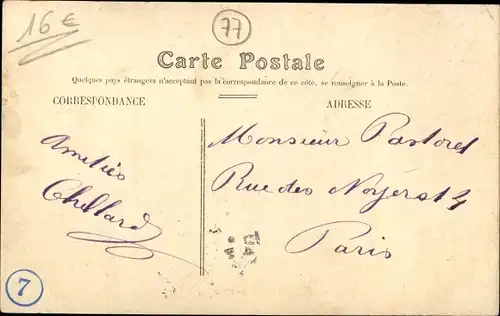 16€
77
Carte Postale
Quelques pays étrangers n'acceptant pas la correspondance de ce côté, se renseigner à la Poste.
CORRESPONDANCE
ADRESSE
Amitiés
Monsieur Pastorel
Rue des Noyers 14
Paris
7